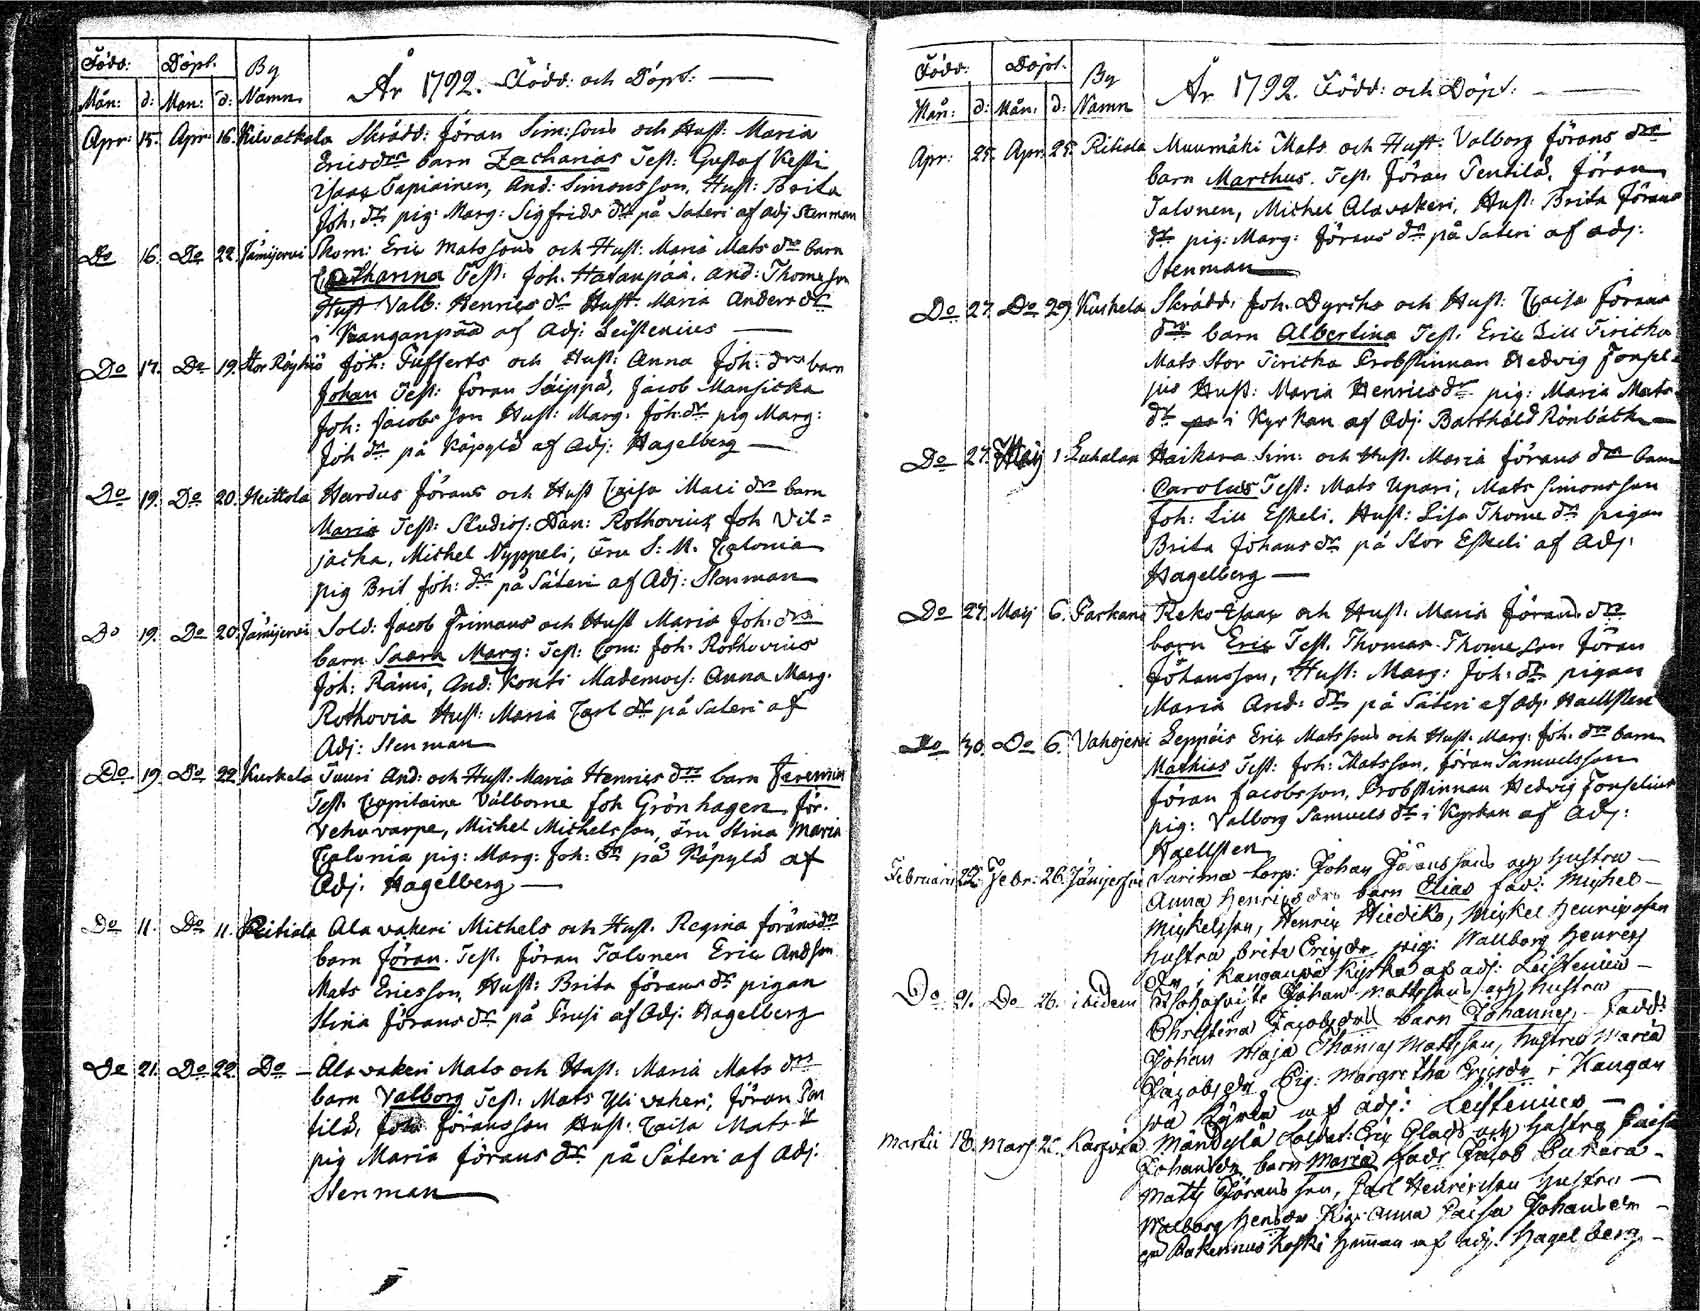 Född: Döpt. By
Mån: d: Mån: d: Namn
År 1792. Född: och Döpt:
Apr: 15. Apr: 16. Kilvackala Skrädd: Jöran Sim:sons och Hust: Maria
Ericsdrs barn Zacharias Test: Gustaf Kesti
Ysaac Tapiainen, And: Simonsson, Hust: Brita
Joh: dr pig: Marg: Sigfrids dr på Säteri af adj Stenman
Do 16. Do 22. Jämijervi Thom: Eric Matssons och Hust: Maria Mats drs barn
Catharina Test: Joh. Hatanpää. And: Thomesson
Hust Valb: Henrics dr Hust. Maria Anders dr
i Kanganpää af Adj: Leistenius
Do 17. Do 19. Stor Röyhiö Joh: Tufferts och Hust: Anna Joh: drs barn
Johan Test: Jöran Säippä, Jacob Mansicka
Joh: Jacobsson Hust: Marg: Joh: dr pig Marg:
Joh dr på Käpylä af Adj: Hagelberg
Do 19. Do 20. Heittola Hardus Jörans och Hust Caisa Mati drs barn
Maria Test: Studios: Dan: Rothovius, Joh Vil=
jacka, Michel Nyppeli, Fru S: M. Calonia
pig Brit Joh: dr på Säteri af Adj: Stenman
Do 19. Do 20. Jämijervi Sold: Jacob Frimans och Hust Maria Joh: drs
barn Saara Marg: Test: Com: Joh. Rothovius
Joh: Rämi, And: Konti Mademois: Anna Marg.
Rothovia Hust: Maria Carl dr på Säteri af
Adj: Stenman
Do 19. Do 22. Kuskela Tuuri And: och Hust: Maria Henrics drs barn Jeremias
Test. Capitaine Välborne Joh Grönhagen, Jör.
Vehuvarpe, Michel Michelsson, Fru Stina Maria
Calonia pig: Marg: Joh: dr på Käpylä af
Adj: Hagelberg
Do 11. Do 11. Riitiala Alavakeri Michels och Hust. Regina Jörans drs
barn Jöran. Test. Jöran Talonen Eric Andson
Mats Ericsson, Hust: Brita Jörans dr pigan
Stina Jörans dr på Trusi af Adj: Hagelberg
Do 21. Do 22. Do Alavakeri Mats och Hust: Maria Mats drs
barn Valborg Test: Mats Ylivakeri, Jöran Pen
tilä, Joh: Jöransson Hust. Caisa Mats dr
pig Maria Jörans dr på Säteri af Adj.
Stenman
Född: Döpt. By
Mån: d: Mån: d: Namn
År 1792. Född: och Döpt:
Apr: 25. Apr. 25. Riitiala Muumäki Mats och Hust. Valborg Jörans drs
barn Marthus. Test. Jöran Pentilä, Jöran
Talonen, Michel Alavakeri, Hust: Brita Jörans
dr pig: Marg: Jörans dr på Säteri af Adj:
Stenman
Do 27. Do 29. Kuskela Skrädd: Joh. Dyriks och Hust: Caisa Jörans
drs barn Albertina Test: Eric Lill Tiricka
Mats Stor Tiricka Probstinnan Hedvig Fonsel=
jus Hust: Maria Henrics dr pig: Maria Mats
dr i Kyrkan af Adj: Batthold Rönbäck
Do 27. Maij 1. Luhalan Haikara Sim: och Hust. Maria Jörans drs barn
Carolus Test: Mats Upari, Mats Simonsson
Joh: Lill Eskeli. Hust: Lisa Thome dr pigan
Brita Johans dr på Stor Eskeli af Adj.
Hagelberg
Do 27. Maij 6. Parkano Reko Ysaac och Hust: Maria Jörans drs
barn Eric Test. Thomas Thomesson Jöran
Johansson, Hust: Marg: Joh: dr pigan
Maria And: dr på Säteri af Adj: Haellsten
Do 30. Do 6. Vahojervi Leppäis Eric Matssons och Hust. Marg: Joh. drs barn
Mathias Test: Joh: Matsson, Jöran Samuelsson
Jöran Jacobsson, Probstinnan Hedvig Fonselius
pig: Valborg Samuels dr i Kyrkan af Adj:
Haellsten
Februarii 22. Febr: 26. Jämijervi torp: Johan Jöranssons och hustru
Anna Henrics drs barn Elias fad: Michel
Mickelsson, Henric Hiediko, Mickel Henricsson
hustru Brita Erics dr pig: Wallborg Henrics
dr i Kanganpä Kyrka af adj: Leistenius
Do 21. Do 26. ibidem Johan Mattssons och hustru
Christina Jacobs drs barn Johannes. Fadd:
Johan Maja Thomas Mattsson, hustru Maria
Jacobs dr, Pig: Margretha Erics dr i Kangan
pä Kyrka af adj: Leistenius
Martii 18. Mars 25. Karvia Mändylä Soldat: Eric Glads och hustru Caisa
Johans drs barn Maria fadr Jacob Pukara
Matts Jöransson, Carl Henricsson hustru
Walborg Hens dr Pig: Anna Caisa Johans dr
på Rakennus Koski Heman af adj: Hagelberg